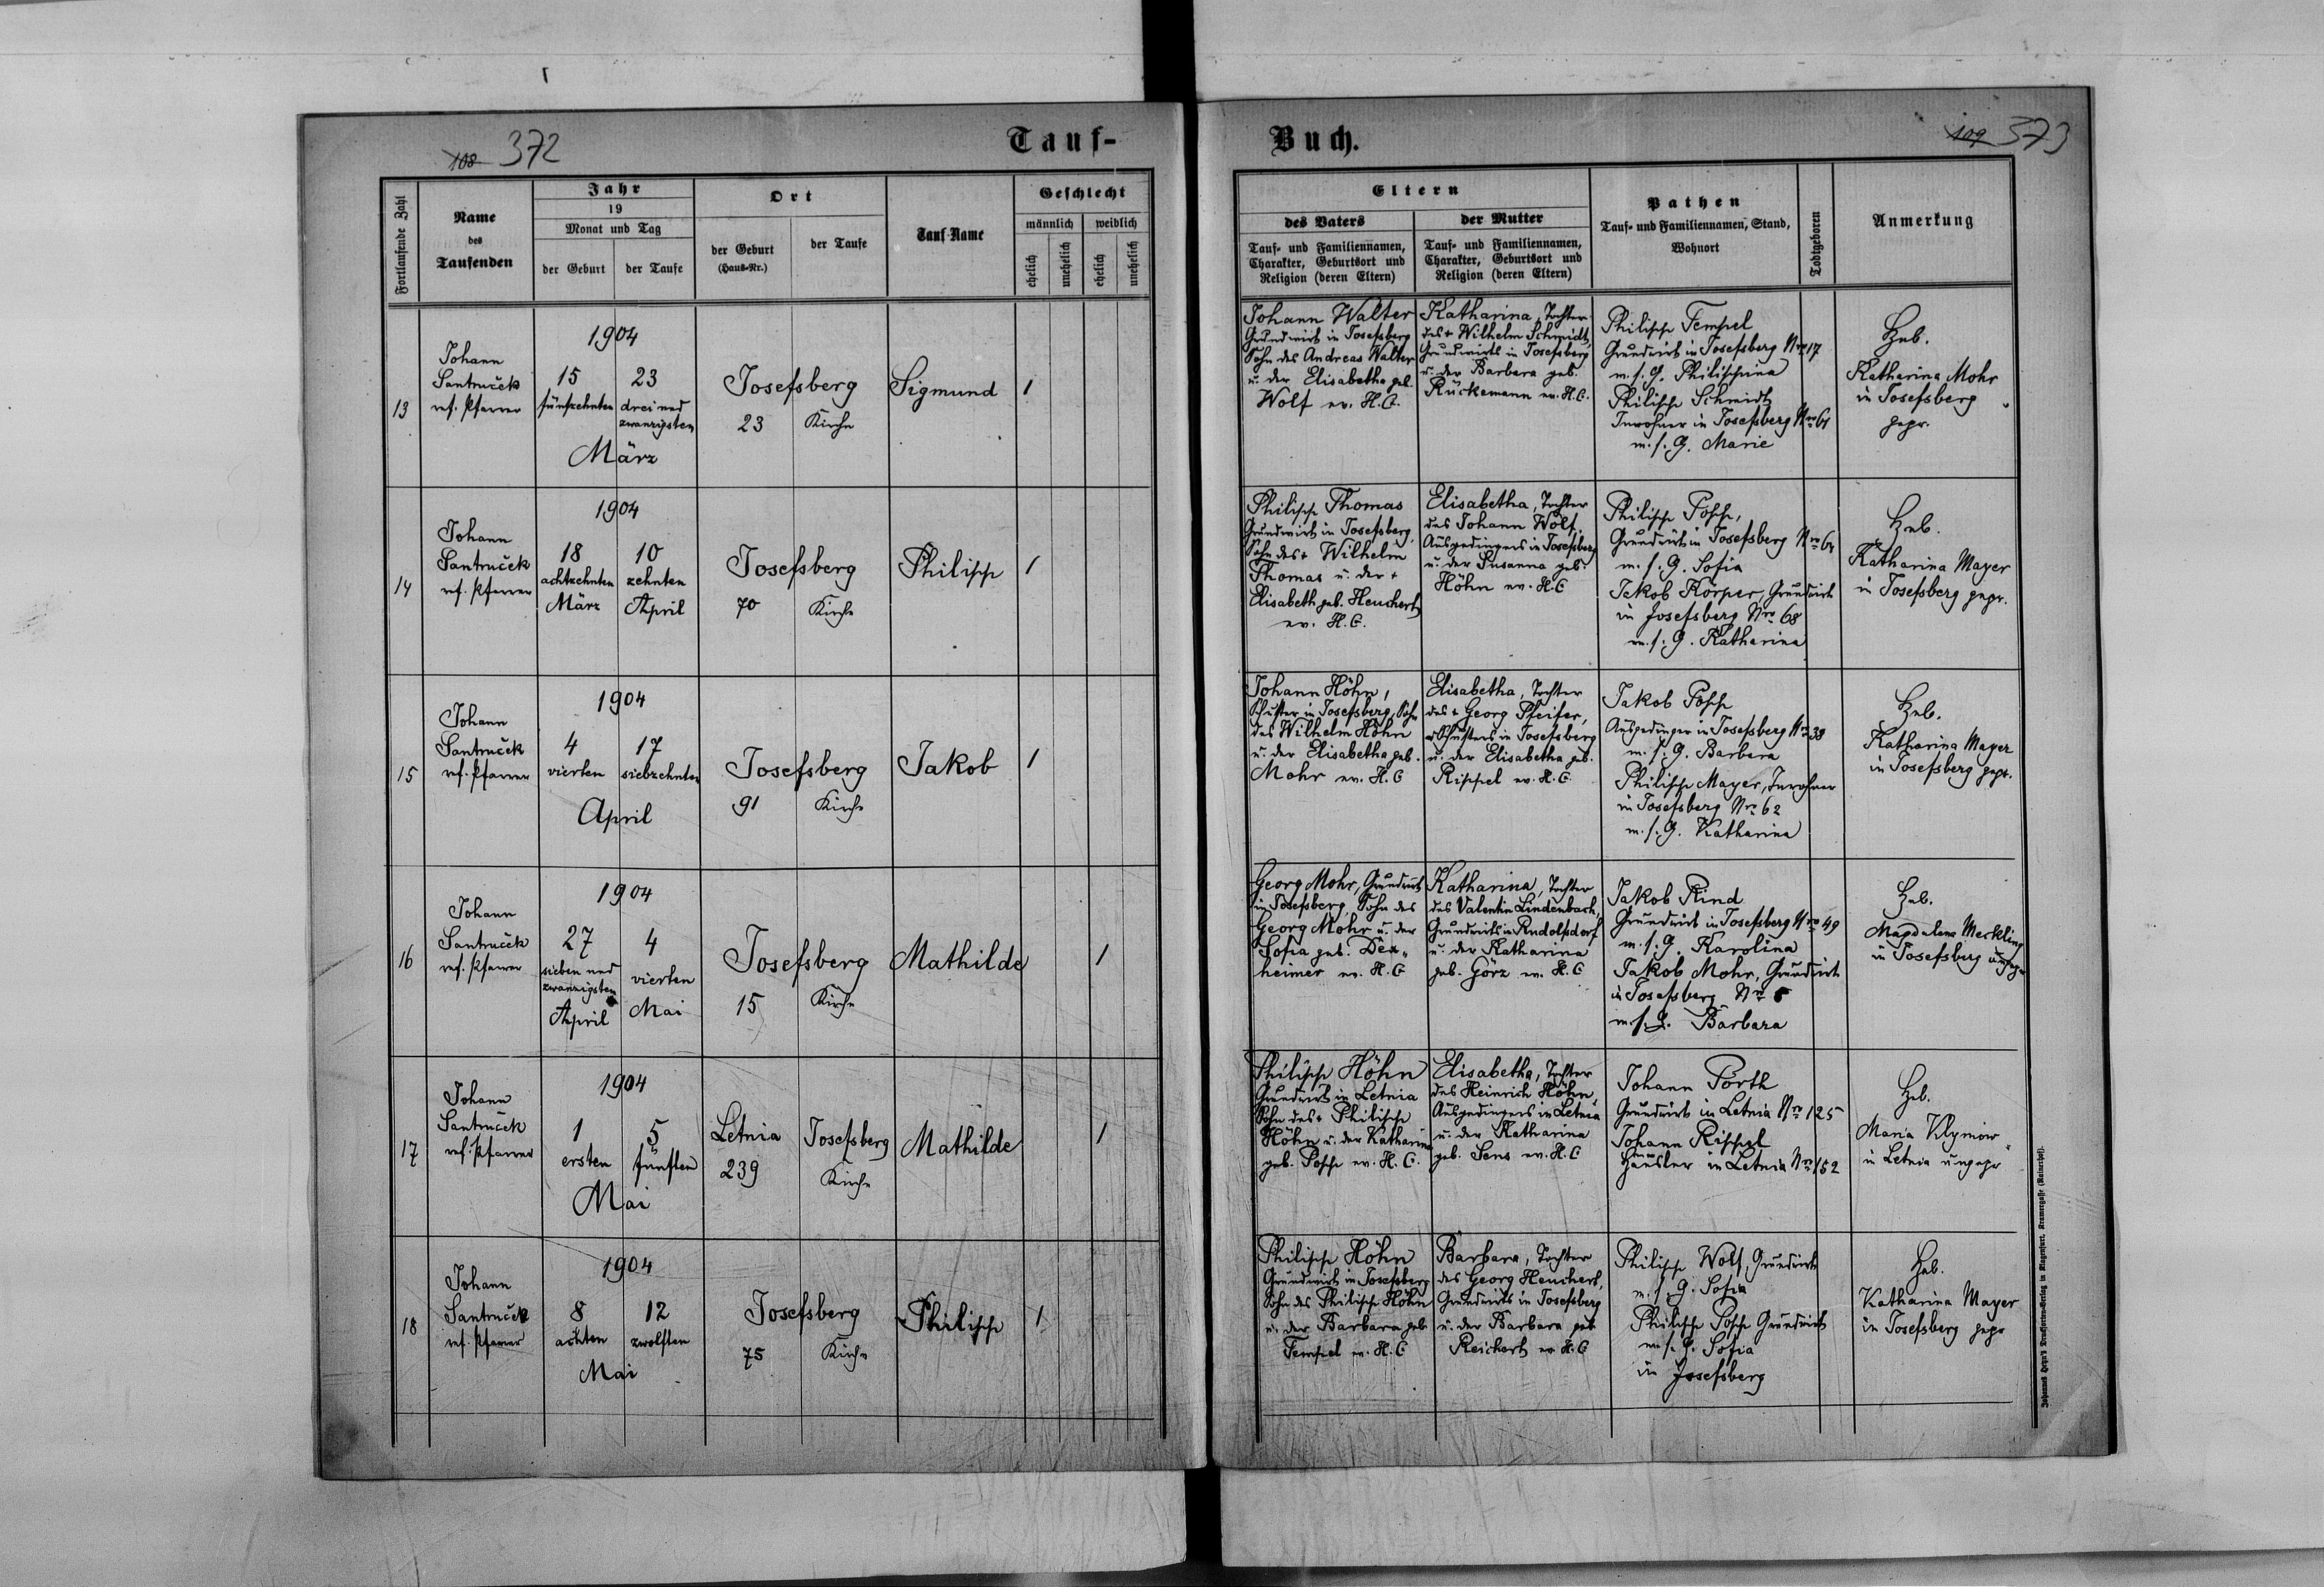 108 372
Tauf-
Fortlaufende Zahl
Name
des
Taufenden
Jahr
19
Monat und Tag
der Geburt
der Taufe
Ort
der Geburt
(Haus-Nr.)
der Taufe
Tauf-Name
Geschlecht
männlich
weiblich
ehelich
unehelich
ehelich
unehelich
13
Johann
Santruček
ref. Pfarrer
1904
15 23
fünfzehnten drei und
zwanzigsten
März
Josefsberg
23 Kirche
Sigmund
1
14
Johann
Santruček
ref. Pfarrer
1904
18 10
achtzehnten zehnten
März April
Josefsberg
70 Kirche
Philipp
1
15
Johann
Santruček
ref. Pfarrer
1904
4 17
vierten siebzehnten
April
Josefsberg
91 Kirche
Jakob
1
16
Johann
Santruček
ref. Pfarrer
1904
27 4
sieben und
zwanzigsten vierten
April Mai
Josefsberg
15 Kirche
Mathilde
1
17
Johann
Santruček
ref. Pfarrer
1904
1 5
ersten fünften
Mai
Letnia Josefsberg
239 Kirche
Mathilde
1
18
Johann
Santruček
ref. Pfarrer
1904
8 12
achten zwölften
Mai
Josefsberg
75 Kirche
Philipp
1
Buch.
109 373
Eltern
des Vaters
Tauf- und Familiennamen,
Charakter, Geburtsort und
Religion (deren Eltern)
der Mutter
Tauf- und Familiennamen,
Charakter, Geburtsort und
Religion (deren Eltern)
Pathen
Tauf- und Familiennamen, Stand,
Wohnort
Todtgeboren
Anmerkung
Johann Walter
Grundwirt in Josefsberg
Sohn des Andreas Walter
u. der Elisabetha geb.
Wolf ev. H.C.
Katharina, Tochter
des + Wilhelm Schmidt,
Grundwirts in Josefsberg
u. der Barbara geb.
Rückemann ev. H.C.
Philipp Tempel
Grundwirt in Josefsberg Nro 17
m. s. G. Philippina
Philipp Schmidt
Inwohner in Josefsberg Nro 61
m. s. G. Marie
Heb.
Katharina Mohr
in Josefsberg
gepr.
Philipp Thomas
Grundwirt in Josefsberg,
Sohn des + Wilhelm
Thomas u. der +
Elisabeth geb. Heuchert
ev. H.C.
Elisabetha, Tochter
des Johann Wolf,
Ausgedingers in Josefsberg
u. der Susanna geb.
Höhn ev. H.C
Philipp Popp,
Grundwirt in Josefsberg Nro 64
m. s. G. Sofia
Jakob Körper, Grundwirt
in Josefsberg Nro 68
m. s. G. Katharina
Heb.
Katharina Mayer
in Josefsberg gepr.
Johann Höhn,
Schuster in Josefsberg, Sohn
des Wilhelm Höhn
u. der Elisabetha geb.
Mohr ev. H.C
Elisabetha, Tochter
des + Georg Pfeifer,
Schusters in Josefsberg
u. der Elisabetha geb.
Rippel ev. H.C.
Jakob Popp
Ausgedinger in Josefsberg Nro 38
m. s. G. Barbara
Philipp Mayer, Inwohner
in Josefsberg Nro 62
m. s. G. Katharina
Heb.
Katharina Mayer
in Josefsberg gepr.
Georg Mohr, Grundwirt
in Josefsberg, Sohn des
Georg Mohr u. der
Sofia geb. Dex„
heimer ev. H.C
Katharina, Tochter
des Valentin Lindenbach,
Grundwirts in Rudolfsdorf
u. der Katharina
geb. Görz ev. H.C
Jakob Rind
Grundwirt in Josefsberg Nro 49
m. s. G. Karolina
Jakob Mohr, Grundwirt
in Josefsberg Nro 5
m. s. G. Barbara
Heb.
Magdalena Meckling
in Josefsberg ungepr
Philipp Höhn
Grundwirt in Letnia
Sohn des + Philipp
Höhn u. der Katharina
geb. Popp ev. H.C.
Elisabetha, Tochter
des Heinrich Höhn,
Ausgedingers in Letnia
u. der Katharina
geb. Sens ev. H.C
Johann Porth
Grundwirt in Letnia Nro 125
Johann Rippel
Häusler in Letnia Nro 152
Heb.
Maria Klymow
in Letnia ungepr
Philipp Höhn
Grundwirt in Josefsberg
Sohn des Philipp Höhn
u. der Barbara geb
Tempel ev. H.C
Barbara, Tochter
des Georg Heuchert,
Grundwirts in Josefsberg
u. der Barbara geb
Reichert ev H.C
Philipp Wolf, Grundwirt
m. s. G. Sofia
Philipp Popp Grundwirt
m. s. G. Sofia
in Josefsberg
Heb.
Katharina Mayer
in Josefsberg gepr
Johannes Heyn's Drucksorten-Verlag in Klagenfurt, Kramergasse (Rainerhof).